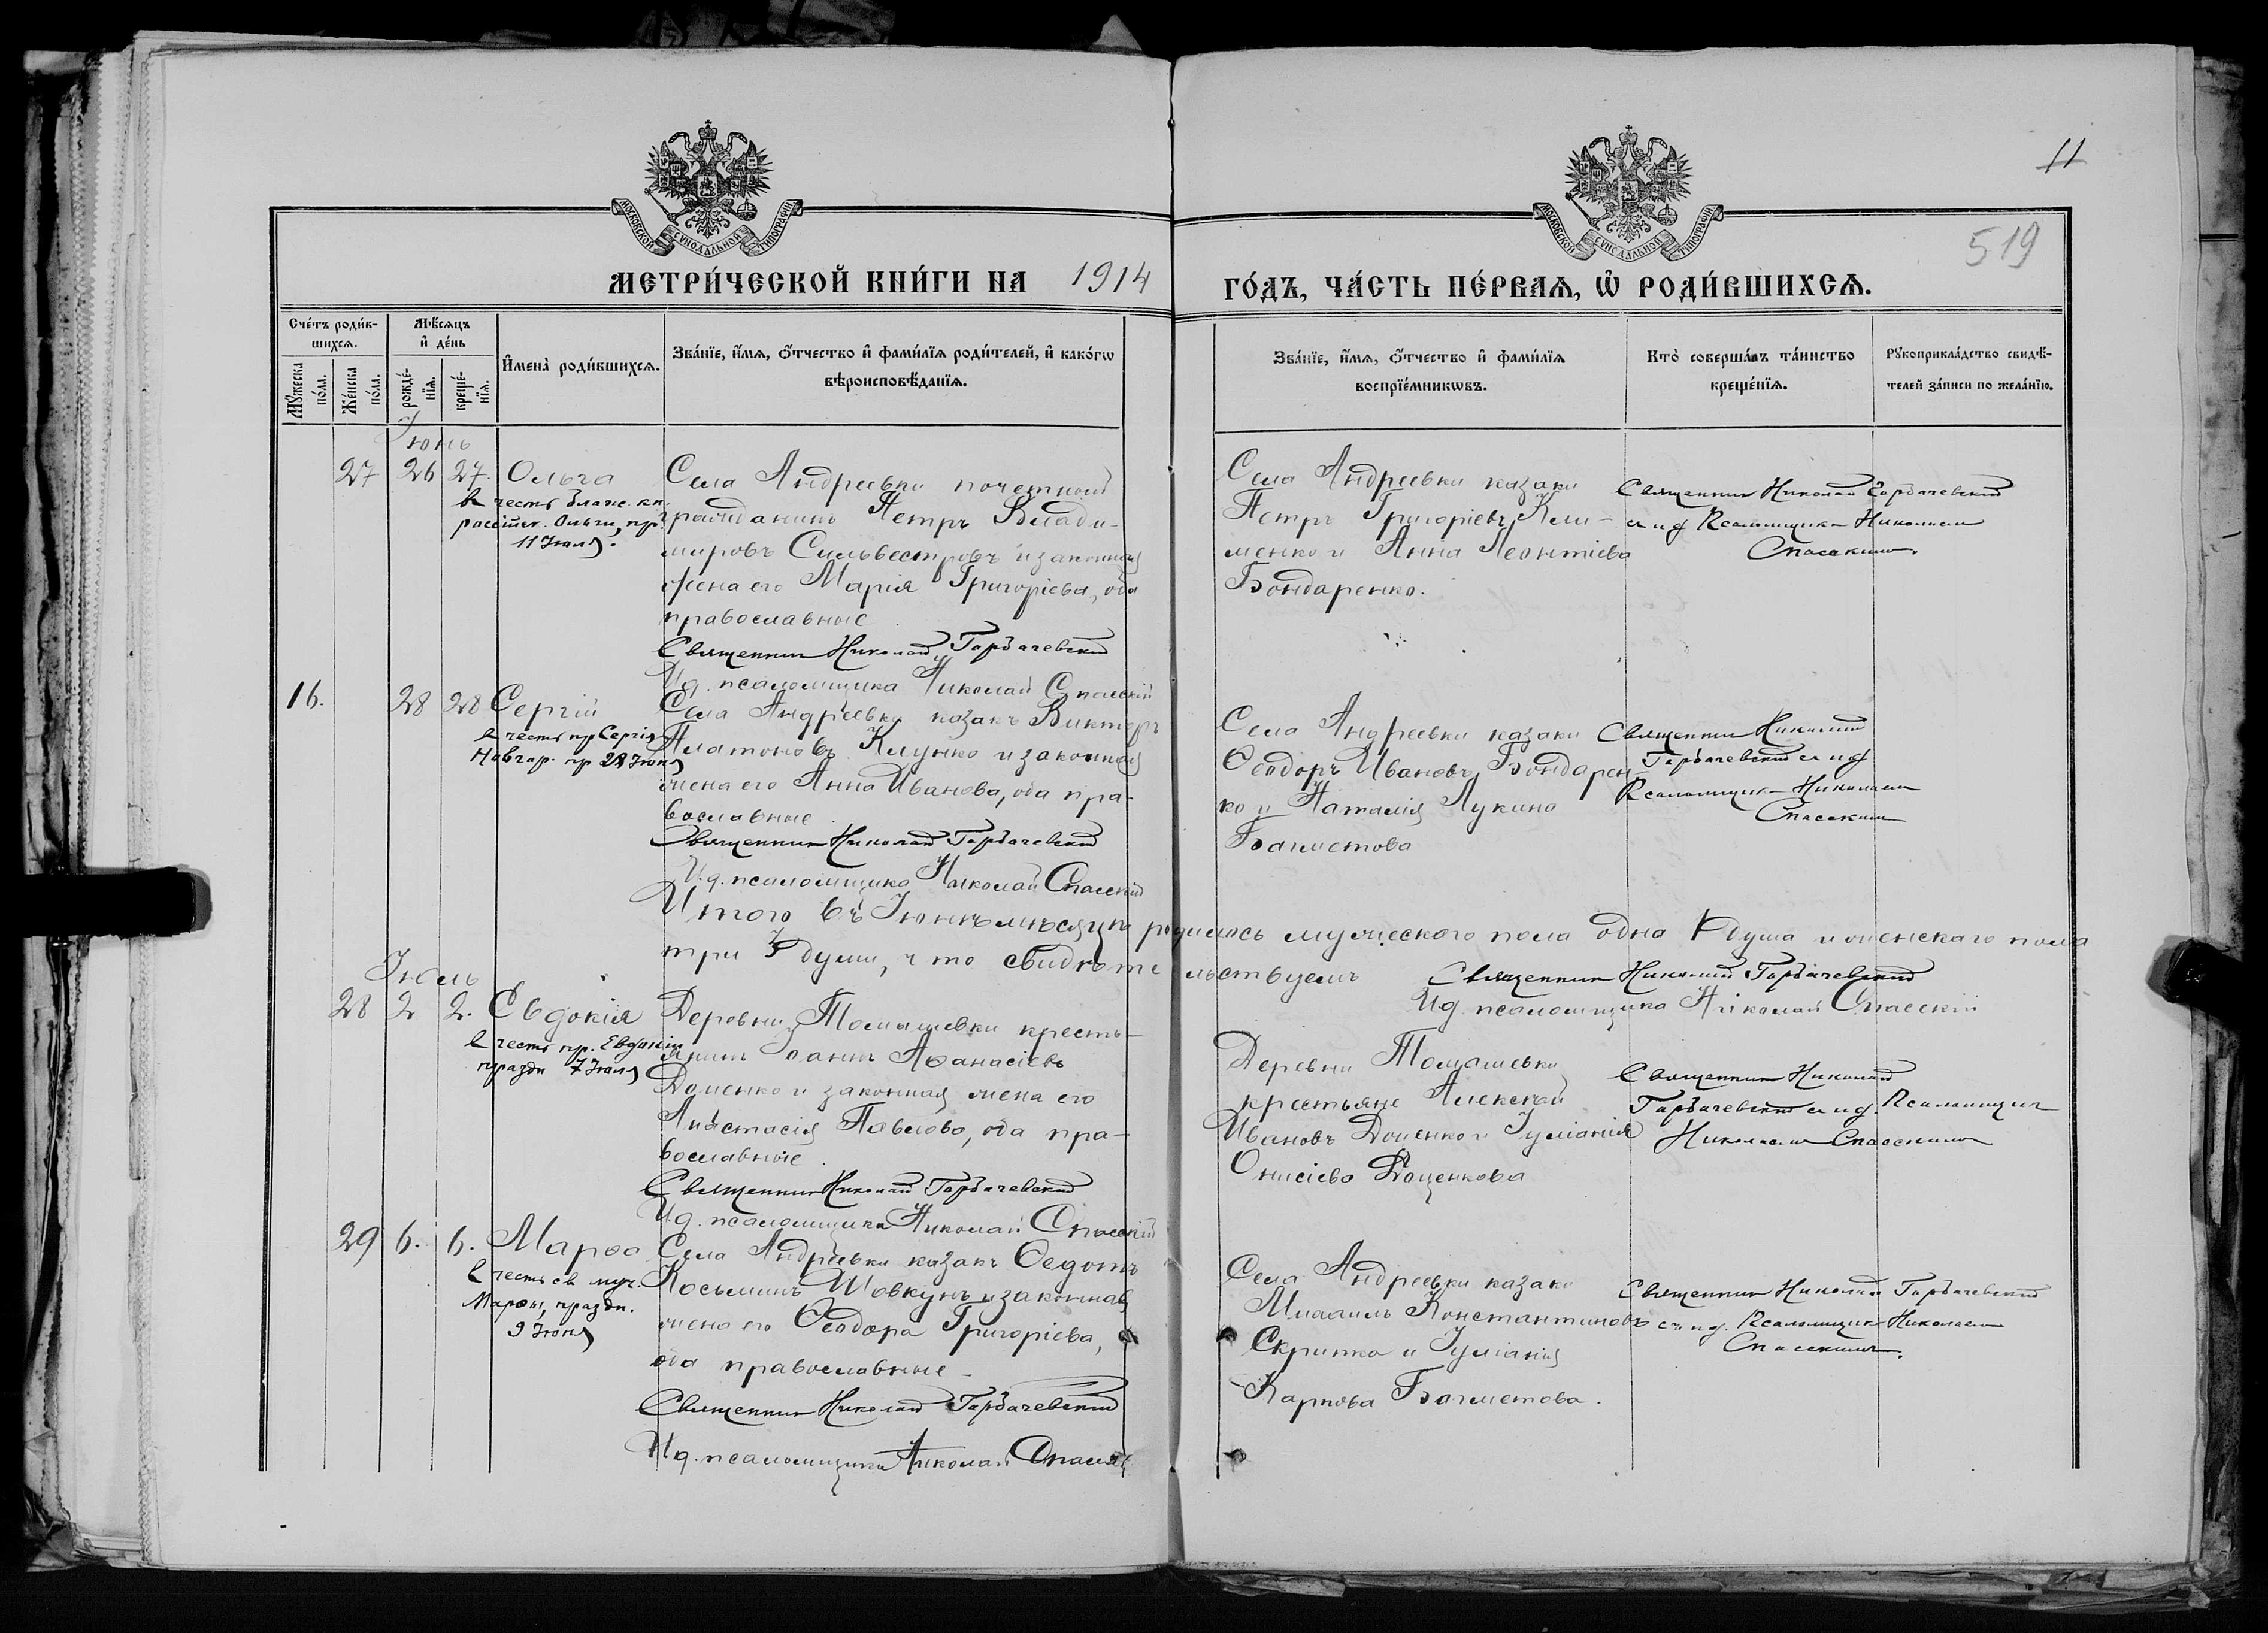 11
519
МОСКОВСКОЙ СѴНОДАЛЬНОЙ ТИПОГРАФІИ
МОСКОВСКОЙ СѴНОДАЛЬНОЙ ТИПОГРАФІИ
МЕТРИ́ЧЕСКОЙ КНИ́ГИ НА 1914 ГО́ДЪ, ЧА́СТЬ ПЕ́РВАѦ, Ѽ РОДИ́ВШИХСѦ.
Сче́тъ роди́в-
шихсѧ.
Мꙋжеска по́ла.
Же́нска по́ла.
Мѣ́сѧцъ и҆ де́нь
рожде́-
нїѧ.
креще́-
нїѧ.
И҆мена̀ роди́вшихсѧ.
Зва́нїе, и҆́мѧ, ѻ҆́тчество и҆ фами́лїѧ роди́телей, и҆ како́гѡ
вѣроисповѣ́данїѧ.
Зва́нїе, и҆́мѧ, ѻ҆́тчество и҆ фами́лїѧ
воспрїе́мникѡвъ.
Кто̀ соверша́лъ та́инство
креще́нїѧ.
Рꙋкоприкла́дство свидѣ́-
телей за́писи по жела́нїю.
Іюнь
27 26 27. Ольга
в честь благ. кн.
россійск. Ольги, пр.
11 Іюля.
Села Андреевки почетный
гражданинъ Петръ Влади-
мировъ Сильвестровъ и законная
жена его Марія Григоріева, оба
православные
Священник Николай Горбачевский
И.д. псаломщика Николай Спасскій
Села Андреевки казаки
Петръ Григоріевъ Кли-
менко и Анна Леонтіева
Бондаренко.
Священник Николай Горбачевский
с и д Псаломщика Николаем
Спасским.
16. 28 28 Сергій
в честь пр Сергія
пр 28 Іюня
Села Андреевки казакъ Викторъ
Платоновъ Клунко и законная
жена его Анна Иванова, оба пра-
вославные
Священник Николай Горбачевский
И.д. псаломщика Николай Спасскій
Села Андреевки казаки
Ѳеодоръ Ивановъ Бондарен-
ко и Наталія Лукина
Багметова
Священник Николай
Горбачевский с и д
Псаломщик Николаем
Спасским
Итого въ Іюнѣ мѣсяцѣ родилось мужескаго пола одна 1 душа и женскаго пола
три 3 души, что свидѣтельствуемъ Священник Николай Горбачевский
И д. псаломщика Николай Спасскій
Іюль
28 2 2. Евдокія
в честь пр. Евдокіи
праздн 7 Іюля
Деревни Томашевки кресть-
янинъ Іоаннъ Аѳанасіевъ
Доценко и законная жена его
Анастасія Павлова, оба пра-
вославные
Священник Николай Горбачевский
И.д. псаломщика Николай Спасскій
Деревни Томашевки
крестьяне Алексѣй
Ивановъ Доценко и Іуліанія
Онисіева Доценкова
Священник Николай
Горбачевский с и д. Псаломщик
Николаем Спасским
29 6. 6. Марѳа
в честь св муч.
Марѳы, праздн.
9 Іюня
Села Андреевки казакъ Ѳедотъ
Косьминъ Шовкунъ и законная
жена его Ѳеодора Григоріева,
оба православные
Священник Николай Горбачевский
И.д. псаломщика Николай Спасскій
Села Андреевки казаки
Михаилъ Константиновъ
Скрипка и Іуліанія
Карпова Багметова.
Священник Николай Горбачевский
с и д. Псаломщик Николаем
Спасским.